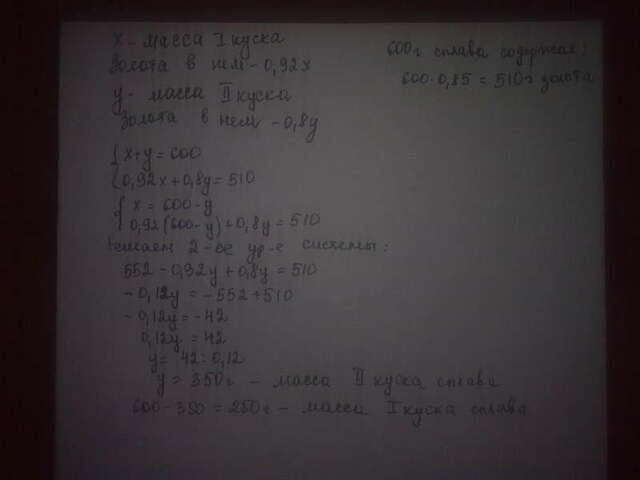 x - масса I куска
Золота в нем - 0,92x
y - масса II куска
Золота в нем - 0,8y
600 г сплава содержат:
600·0,85 = 510 г золота
{ x+y = 600
0,92x + 0,8y = 510
{ x = 600-y
0,92(600-y)+0,8y = 510
Решаем 2-ое ур-е системы:
552 - 0,92y + 0,8y = 510
- 0,12y = -552+510
- 0,12y = -42
0,12y = 42
y = 42:0,12
y = 350 г - масса II куска сплава
600-350 = 250 г - масса I куска сплава